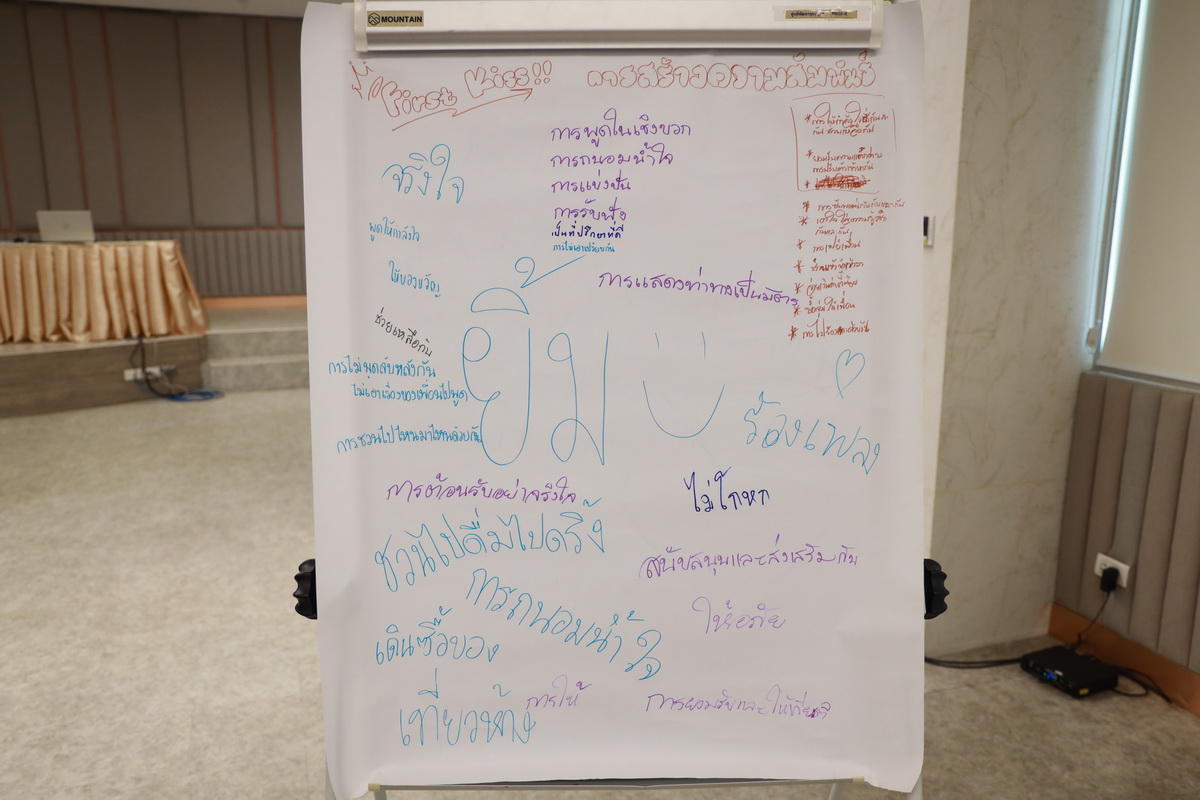 MOUNTAIN
First Kiss!! การสร้างความสัมพันธ์
การพูดในเชิงบวก
การถนอมน้ำใจ
การแบ่งปัน
การรับฟัง
เป็นที่ปรึกษาที่ดี
การไม่เอาเปรียบกัน
จริงใจ
พูดให้กำลังใจ
ให้ของขวัญ
ช่วยเหลือกัน
การไม่พูดลับหลังกัน
ไม่เอาเรื่องของเพื่อนไปพูด
การชวนไปไหนมาไหนด้วยกัน
การแสดงท่าทางเป็นมิตร
* การให้กำลังใจซึ่งกันและ
กัน
* ยอมรับความแตกต่าง
การปรับตัวเข้าหากัน
ยิ้ม
ร้องเพลง
การต้อนรับอย่างจริงใจ
ไม่โกหก
ชวนไปดื่มไปดริ้ง
สนับสนุนและส่งเสริมกัน
การถนอมน้ำใจ
ให้อภัย
เดินซื้อของ
การให้
การยอมรับและให้เกียรติ
เที่ยวห้าง